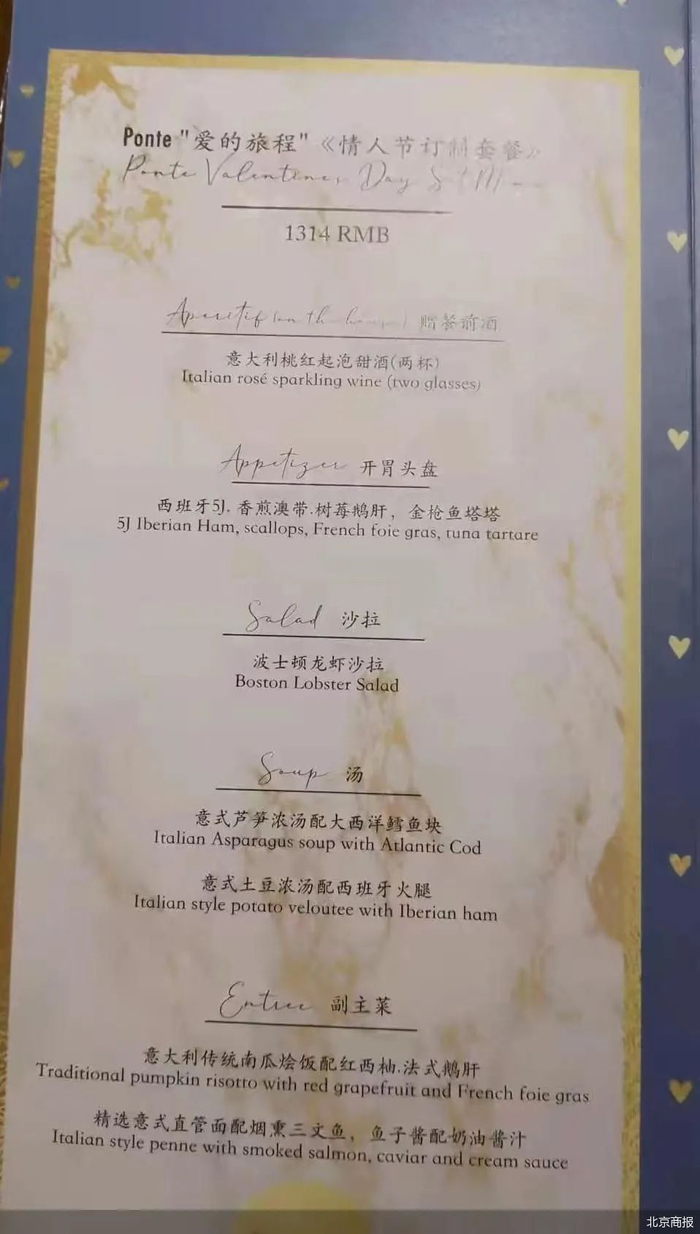 Ponte "爱的旅程"《情人节订制套餐》
Ponte Valentines Day Set Menu
1314 RMB
Aperitif (on the house) 赠餐前酒
意大利桃红起泡甜酒(两杯)
Italian rosé sparkling wine (two glasses)
Appetizer 开胃头盘
西班牙5J. 香煎澳带.树莓鹅肝，金枪鱼塔塔
5J Iberian Ham, scallops, French foie gras, tuna tartare
Salad 沙拉
波士顿龙虾沙拉
Boston Lobster Salad
Soup 汤
意式芦笋浓汤配大西洋鳕鱼块
Italian Asparagus soup with Atlantic Cod
意式土豆浓汤配西班牙火腿
Italian style potato veloutee with Iberian ham
Entree 副主菜
意大利传统南瓜烩饭配红西柚.法式鹅肝
Traditional pumpkin risotto with red grapefruit and French foie gras
精选意式直管面配烟熏三文鱼，鱼子酱配奶油酱汁
Italian style penne with smoked salmon, caviar and cream sauce
北京商报